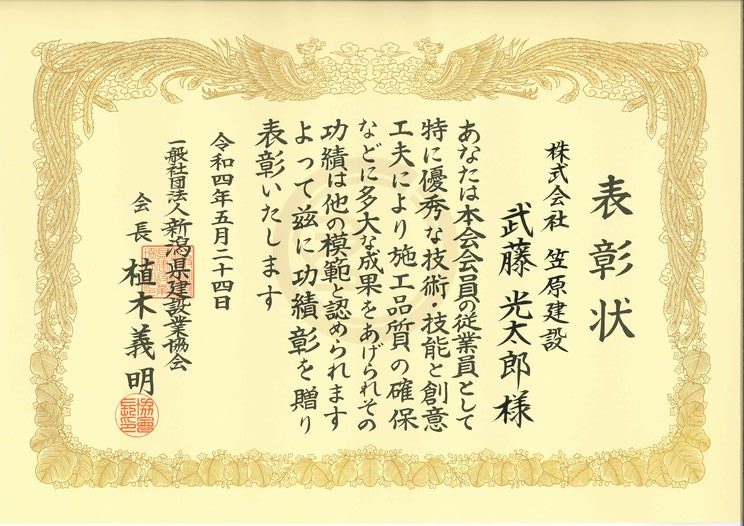 表彰状
株式会社 笠原建設
武藤 光太郎 様
あなたは本会会員の従業員として
特に優秀な技術・技能と創意
工夫により施工品質の確保
などに多大な成果をあげられその
功績は他の模範と認められます
よって茲に功績彰を贈り
表彰いたします
令和四年五月二十四日
一般社団法人 新潟県建設業協会
会長 植木義明